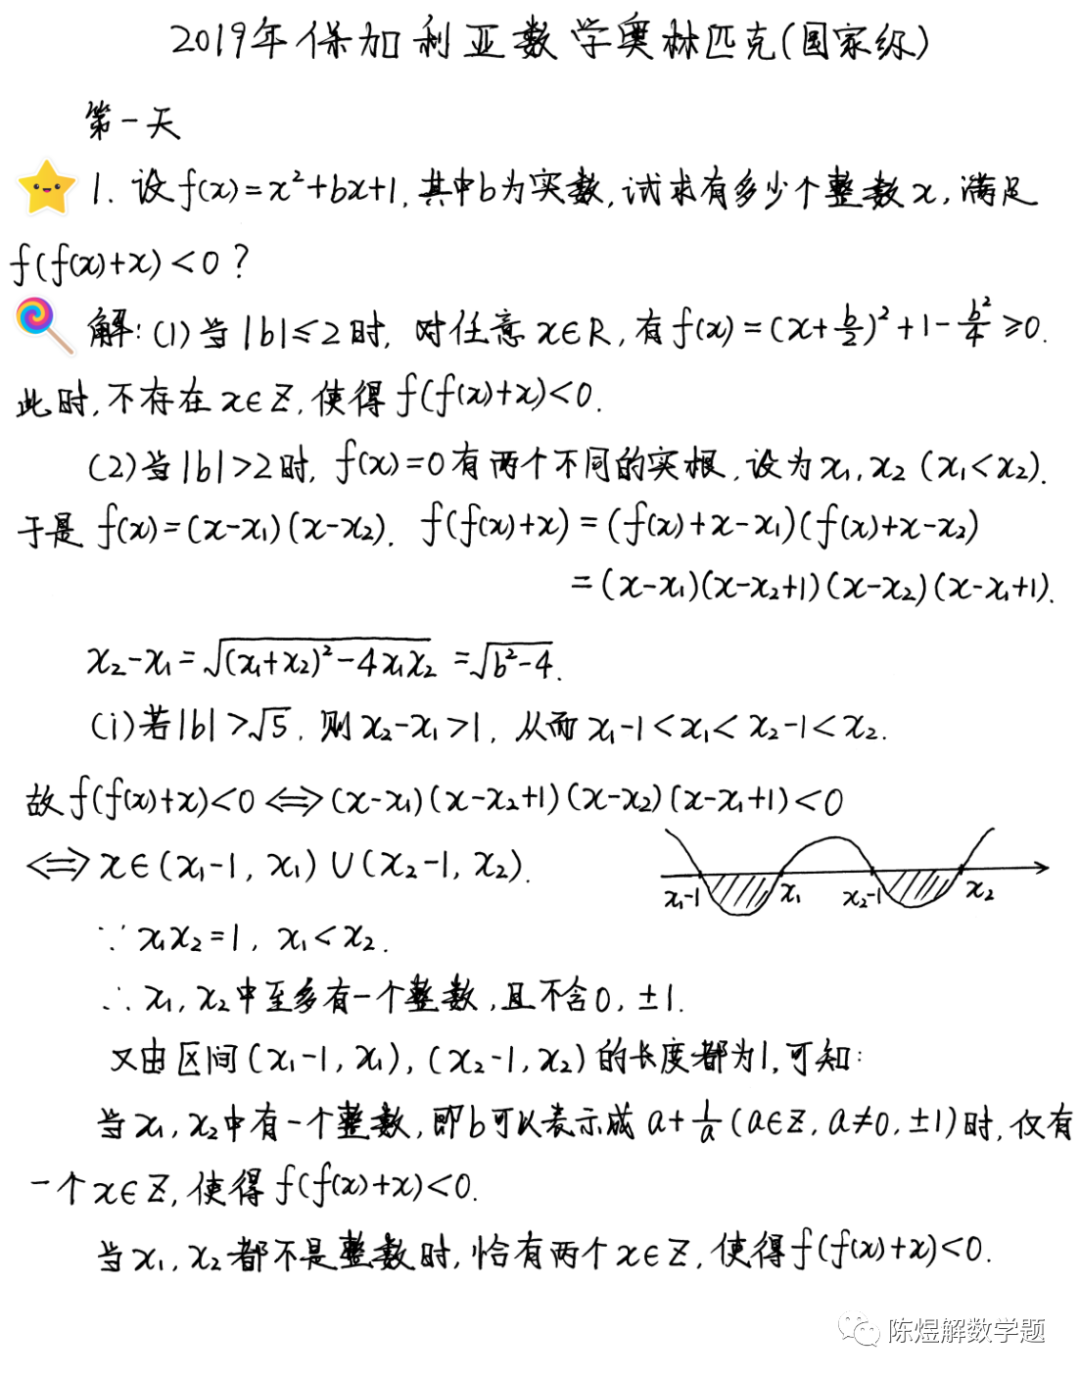 2019年保加利亚数学奥林匹克(国家级)
第一天
1. 设f(x)=x²+bx+1,其中b为实数,试求有多少个整数x,满足
f(f(x)+x)<0?
解:(1)当|b|≤2时,对任意x∈R,有f(x)=(x+b/2)²+1-b²/4≥0.
此时,不存在x∈Z,使得f(f(x)+x)<0.
(2)当|b|>2时,f(x)=0有两个不同的实根,设为x₁,x₂(x₁<x₂).
于是f(x)=(x-x₁)(x-x₂). f(f(x)+x)=(f(x)+x-x₁)(f(x)+x-x₂)
=(x-x₁)(x-x₂+1)(x-x₂)(x-x₁+1).
x₂-x₁=√((x₁+x₂)²-4x₁x₂)=√(b²-4).
(i)若|b|>√5,则x₂-x₁>1,从而x₁-1<x₁<x₂-1<x₂.
故f(f(x)+x)<0⟺(x-x₁)(x-x₂+1)(x-x₂)(x-x₁+1)<0
⟺x∈(x₁-1,x₁)∪(x₂-1,x₂).
x₁-1 x₁ x₂-1 x₂
∵x₁x₂=1,x₁<x₂.
∴x₁,x₂中至多有一个整数,且不含0,±1.
又由区间(x₁-1,x₁),(x₂-1,x₂)的长度都为1,可知:
当x₁,x₂中有一个整数,即b可以表示成a+1/a(a∈Z,a≠0,±1)时,仅有
一个x∈Z,使得f(f(x)+x)<0.
当x₁,x₂都不是整数时,恰有两个x∈Z,使得f(f(x)+x)<0.
陈煜解数学题